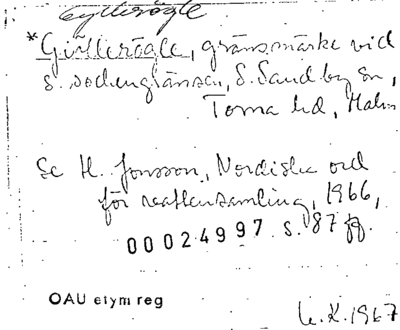 Gyllerögle
*Gillerögle, gränsmärke vid
s. sockengränsen, S. Sandby sn,
Torna hd, Malm
Se H. Jonsson, Nordiska ord
för vattensamling, 1966,
00024997 s. 87 ff.
OAU etym reg
L.K.1967